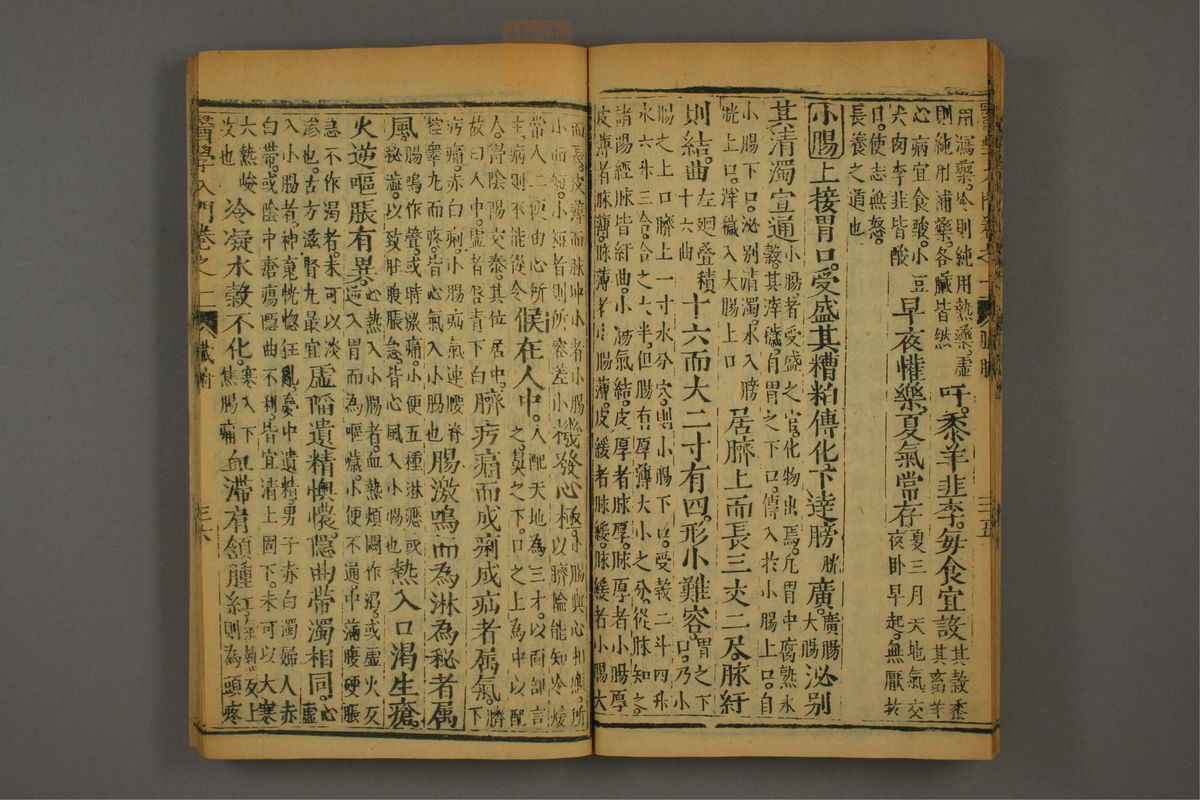 用瀉藥。冷則純用熱藥。虛
則純用補藥。各臟皆然
吁。黍羊韭李。毋食宜設
其穀黍
其畜羊
心病宜食酸。小豆
犬肉李韭皆酸
早夜懽樂。夏氣常存
夏三月天地氣交
夜卧早起。無厭於
日。使志無怒。
長養之道也
小腸上接胃口。受盛其糟粕傳化。下達膀胱廣
廣腸
大腸
泌別
其清濁宣通
小腸者受盛之官。化物出焉。凡胃中腐熟水
穀。其滓穢。自胃之下口。傳入於小腸上口。自
小腸下口。泌別清濁。水入膀
胱上口。滓穢入大腸上口
居臍上而長三丈二尺。脉紆
則結。曲
左廻疊積
十六曲
十六而大二寸有四。形小難容。
胃之下
口。乃小
腸之上口。臍上一寸水分穴。則小腸下口。受穀二斗四升
水六升三合。合之大半。但腸有厚薄大小之分。從脉知之
諸陽經脉皆紆曲。小腸氣結。皮厚者脉厚。脉厚者小腸厚
皮薄者脉薄。脉薄者小腸薄。皮緩者脉緩。脉緩者小腸大
而長。皮薄而脉冲小者小腸
小而短。小短則所容差小
機發心極
小腸與心相應。所
以臍輪能知冷煖
帶人二便由心所
主。病則不能從令
候在人中。
人配天地為三才。以面部言
之。鼻之下。口之上為中以配
人。得陰陽交泰。其位居中。
故曰人中。虛者唇青下白
臍疠痛而成痢成疝者属氣。
臍
下
疠痛。赤白痢。小腸疝氣連腰脊
控睾丸而疼。皆心氣入小腸也
腸激鳴而為淋為秘者属
風。
腸鳴作聲。或時激痛。小便五種淋澀。或
秘澁。以致肚腹脹急。皆心風入小腸也
熱入口渴生瘡。
火逆嘔脹有異。
心熱入小腸者。血熱煩悶作渴。或虛火反
逆入胃而為嘔噦。小便不通中滿腹硬脹
急不作渴者。未可以淡
滲也。古方滋腎丸最宜
虛陷遺精懊憹。隱曲帶濁相同
心
虛
入小腸者。神恍惚狂亂。夢中遺精。男子赤白濁。婦人赤
白帶。或陰中瘡瘍隱曲不利。皆宜清上固下。未可以大寒
大熱峻
攻也
冷凝水穀不化
寒入下
焦腸痛
血滯肓頷腫紅
熱反上
則為頭疼
醫學入門卷之一
臟腑
三六